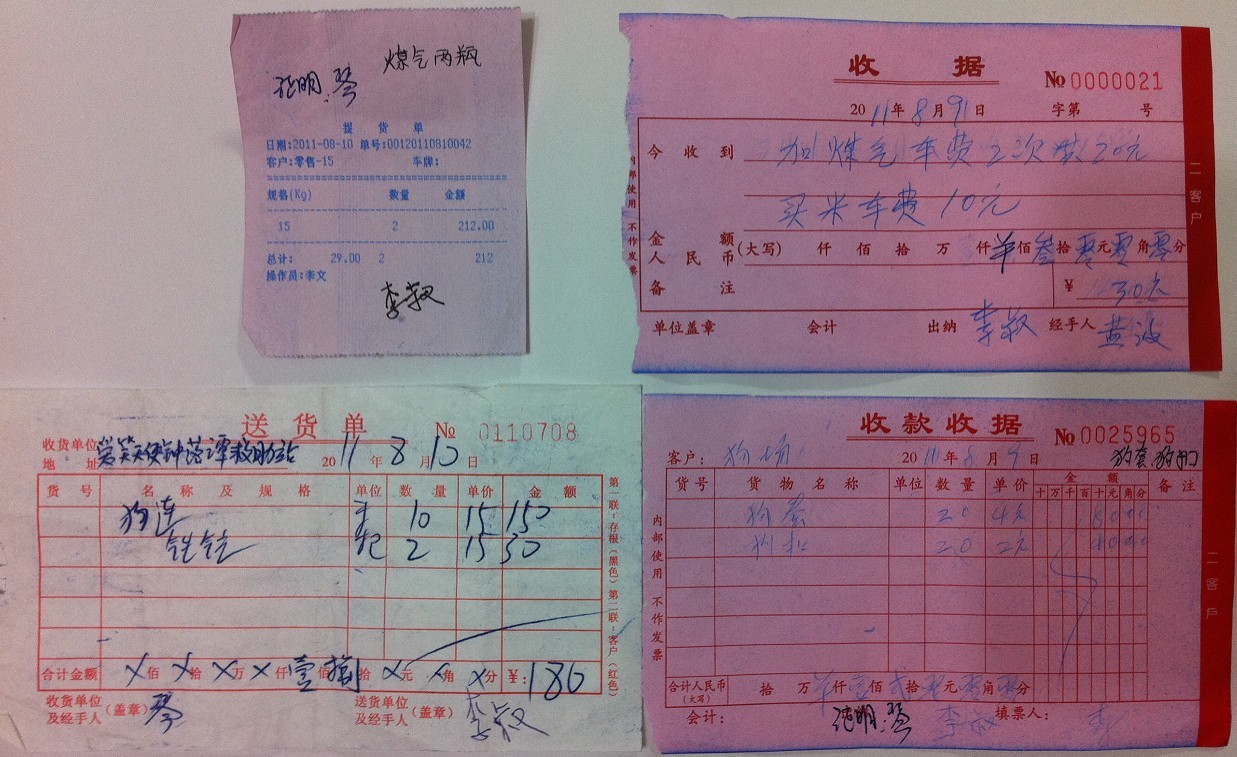 煤气两瓶
证明:琴
提 货 单
日期:2011-08-10 单号:00120110810042
客户:零售-15 车牌:
规格(Kg) 数量 金额
15 2 212.00
总计: 29.00 2 212
操作员:李文
李叔
收 据
No 0000021
2011年8月9日 字第 号
今 收 到 加煤气车费2次共20元
买米车费10元
金 额
人 民 币 (大写) 仟 佰 拾 万 仟 佰叁拾零元零角零分
备 注 ¥ 30元
单位盖章 会计 出纳 李叔 经手人 黄波
内部使用 不作发票
二 客户
送 货 单
No 0110708
收货单位
地 址 2011年8月10日
货 号 名 称 及 规 格 单位 数 量 单价 金 额
狗连 10 15 150
把 2 15 30
合计金额 X佰X拾X万X仟壹佰捌拾X元X角X分 ¥:180
收货单位
及经手人(盖章) 琴
送货单位
及经手人(盖章) 李叔
第一联:存根(黑色)第二联:客户(红色)
收 款 收 据
No 0025965
客户: 狗场 2011年8月9日 狗套,狗扣
货号 货 物 名 称 单位 数 量 单 价 金 额 备 注
十 万 千 百 十 元 角 分
狗套 20 4元 8000
狗扣 20 2元 4000
合计人民币
(大写) 拾 万 仟壹佰贰拾零元零角零分
会计: 证明:琴 李叔 填票人: 李
内部使用 不作发票
二 客户